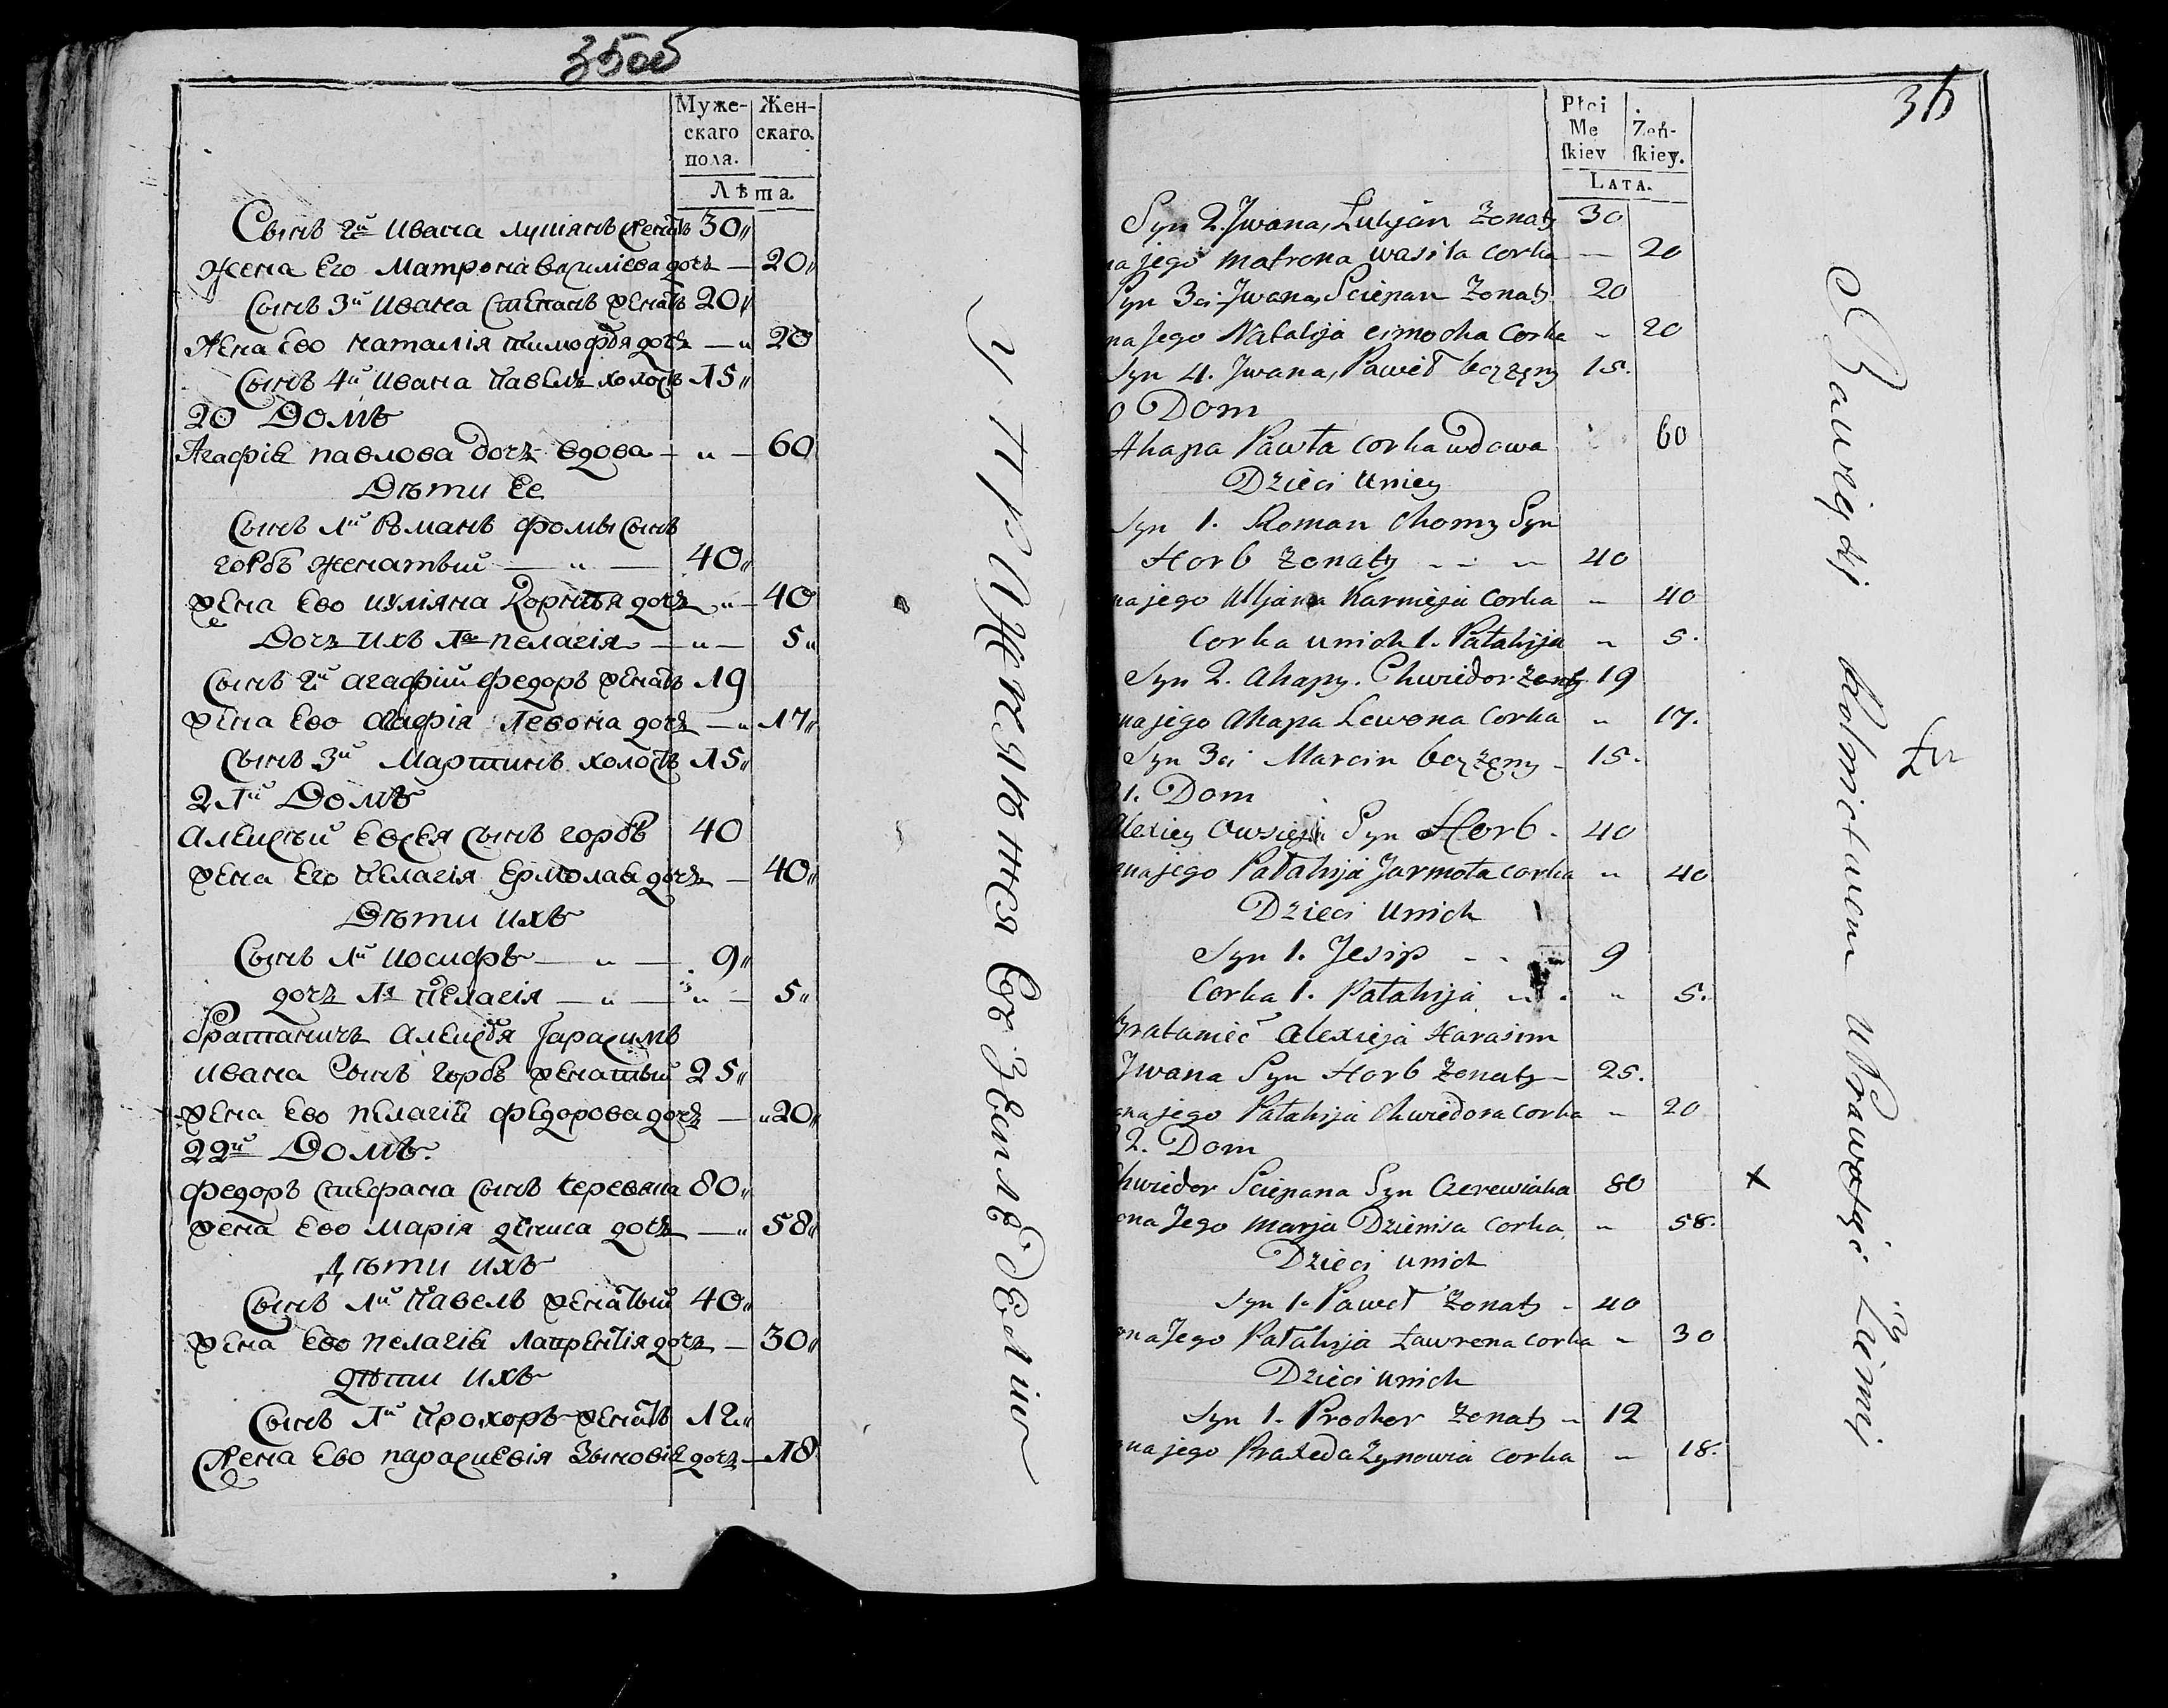 35об
Муже- Жен-
скаго скаго.
пола.
Лѣта.
Сынъ 2й Ивана Лукіянъ женатъ 30
Жена Его Матрона Василіева дочь — 20
Сынъ 3й Ивана Степанъ женатъ 20
Жена Ево Наталія Тимофѣя дочь — 20
Сынъ 4й Ивана Павелъ холостъ 15
20 Домъ
Агафія Павлова дочь вдова — 60
Дѣти Ее
Сынъ 1й Романъ Фомы сынъ
Горбъ женатый — 40
Жена Ево Иуліяна Корнѣя дочь — 40
Дочь ихъ 1я Пелагія — 5
Сынъ 2й Агафіи Федоръ женатъ 19
Жена Ево Агафія Левона дочь — 17
Сынъ 3й Мартинъ холостъ 15
21й Домъ
Алексѣй Евсея сынъ Горбъ 40
Жена Его Пелагія Ермолая дочь — 40
Дѣти ихъ
Сынъ 1й Иосифъ — 9
дочь 1я Пелагія — 5
Братаничъ Алексѣя Гарасимъ
Ивана Сынъ Горбъ женатый 25
Жена Ево Пелагія Федорова дочь — 20
22й Домъ.
Федоръ Стефана сынъ Черевяка 80
Жена Ево Марія Дениса дочь — 58
Дѣти ихъ
Сынъ 1й Павелъ женатый 40
Жена Ево Пелагія Лаврентія дочь — 30
Дѣти ихъ
Сынъ 1й Прохоръ женатъ 12
Жена Ево Параскевія Зыновія дочь — 18
упражняются въ земледеліи
36
Płci
Me Żeń-
skiey skiey.
LATA.
Syn 2. Jwana, Lukjan Żonaty 30
na jego Matrona Wasila Corka — 20
Syn 3ci Jwana, Sciepan Żonaty 20
na Jego Natalija Cimocha Corka - 20
Syn 4. Jwana, Paweł bez żeny 15.
0 Dom
Ahapa Pawła Corka wdowa 60
Dzieci Uniey
Syn 1. Roman Chomy Syn
Horb Żonaty - - - 40
na jego Uljana Karnieja Corka - 40
Corka unich 1. Pałahija - 5.
Syn 2. Ahapy. Chwiedor Żonaty 19
na jego Ahapa Lewona Corka - 17.
Syn 3ci Marcin bez żeny - 15.
1. Dom
Alexiey Owsieja Syn Horb - 40
na jego Pałahija Jarmoła corka - 40
Dzieci Unich
Syn 1. Jesip - - 9
Corka 1. Pałahija - - 5.
Bratanieć Alexieja Harasim
Jwana Syn Horb Żonaty - 25.
na jego Pałahija Chwiedora corka - 20
2. Dom
Chwiedor Sciepana Syn Czerewiaka 80 x
ona Jego Marja Dzienisa Corka - 58.
Dzieci unich
Syn 1. Paweł Żonaty - 40
ona Jego Pałahija Ławrena corka - 30
Dzieci unich
Syn 1. Prochor Żonaty - 12
na jego Praxeda Zynowia corka - 18.